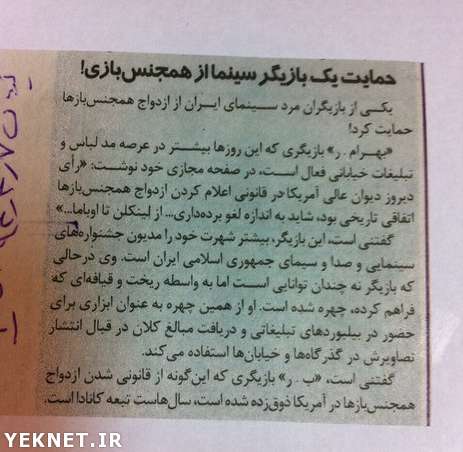 حمایت یک بازیگر سینما از همجنس‌بازی!
یکی از بازیگران مرد سینمای ایران از ازدواج همجنس‌بازها
حمایت کرد!
«بهرام . ر» بازیگری که این روزها بیشتر در عرصه مد لباس و
تبلیغات خیابانی فعال است، در صفحه مجازی خود نوشت: «رأی
دیروز دیوان عالی آمریکا در قانونی اعلام کردن ازدواج همجنس‌بازها
اتفاقی تاریخی بود، شاید به اندازه لغو برده‌داری... از لینکلن تا اوباما...»
گفتنی است، این بازیگر، بیشتر شهرت خود را مدیون جشنواره‌های
سینمایی و صدا و سیمای جمهوری اسلامی ایران است. وی درحالی
که بازیگر نه چندان توانایی است اما به واسطه ریخت و قیافه‌ای که
فراهم کرده، چهره شده است. او از همین چهره به عنوان ابزاری برای
حضور در بیلبوردهای تبلیغاتی و دریافت مبالغ کلان در قبال انتشار
تصاویرش در گذرگاه‌ها و خیابان‌ها استفاده می‌کند.
گفتنی است، «ب . ر» بازیگری که این‌گونه از قانونی شدن ازدواج
همجنس‌بازها در آمریکا ذوق‌زده شده است، سال‌هاست تبعه کانادا است.
YEKNET.IR